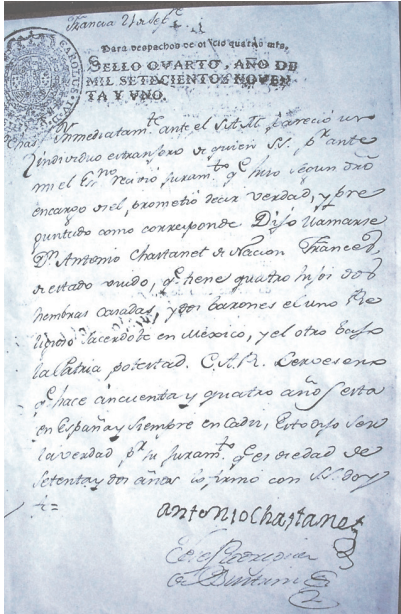 Francia 21 de Sep.e
CAROLUS IV D.G.
Para despachos de oficio quatro mrs.
SELLO QVARTO, AÑO DE
MIL SETECIENTOS NOVEN-
TA Y VNO.
Inmediatam.te ante el S.r A.M. pareció un
individuo extranjero de quien S.S. p.r ante
mi el Es.no recivió juram.to q.e hizo segun dro
encargo del, prometió decir verdad, y pre
guntado como corresponde Dijo llamarse
D.n Antonio Chastanet de Nacion Frances,
de estado viudo, q.e tiene quatro hijos dos
hembras casadas, y dos barones el uno Re
ligioso Sacerdote en México, y el otro bajo
la Patria potestad. C.A.R.
q.e hace cincuenta y quatro años esta
en España y siempre en Cadiz, Esto dijo ser
la verdad p.r su juram.to q.e es de edad de
setenta y dos años lo firmó con S.S. doy
fe=
antonio Chastanet